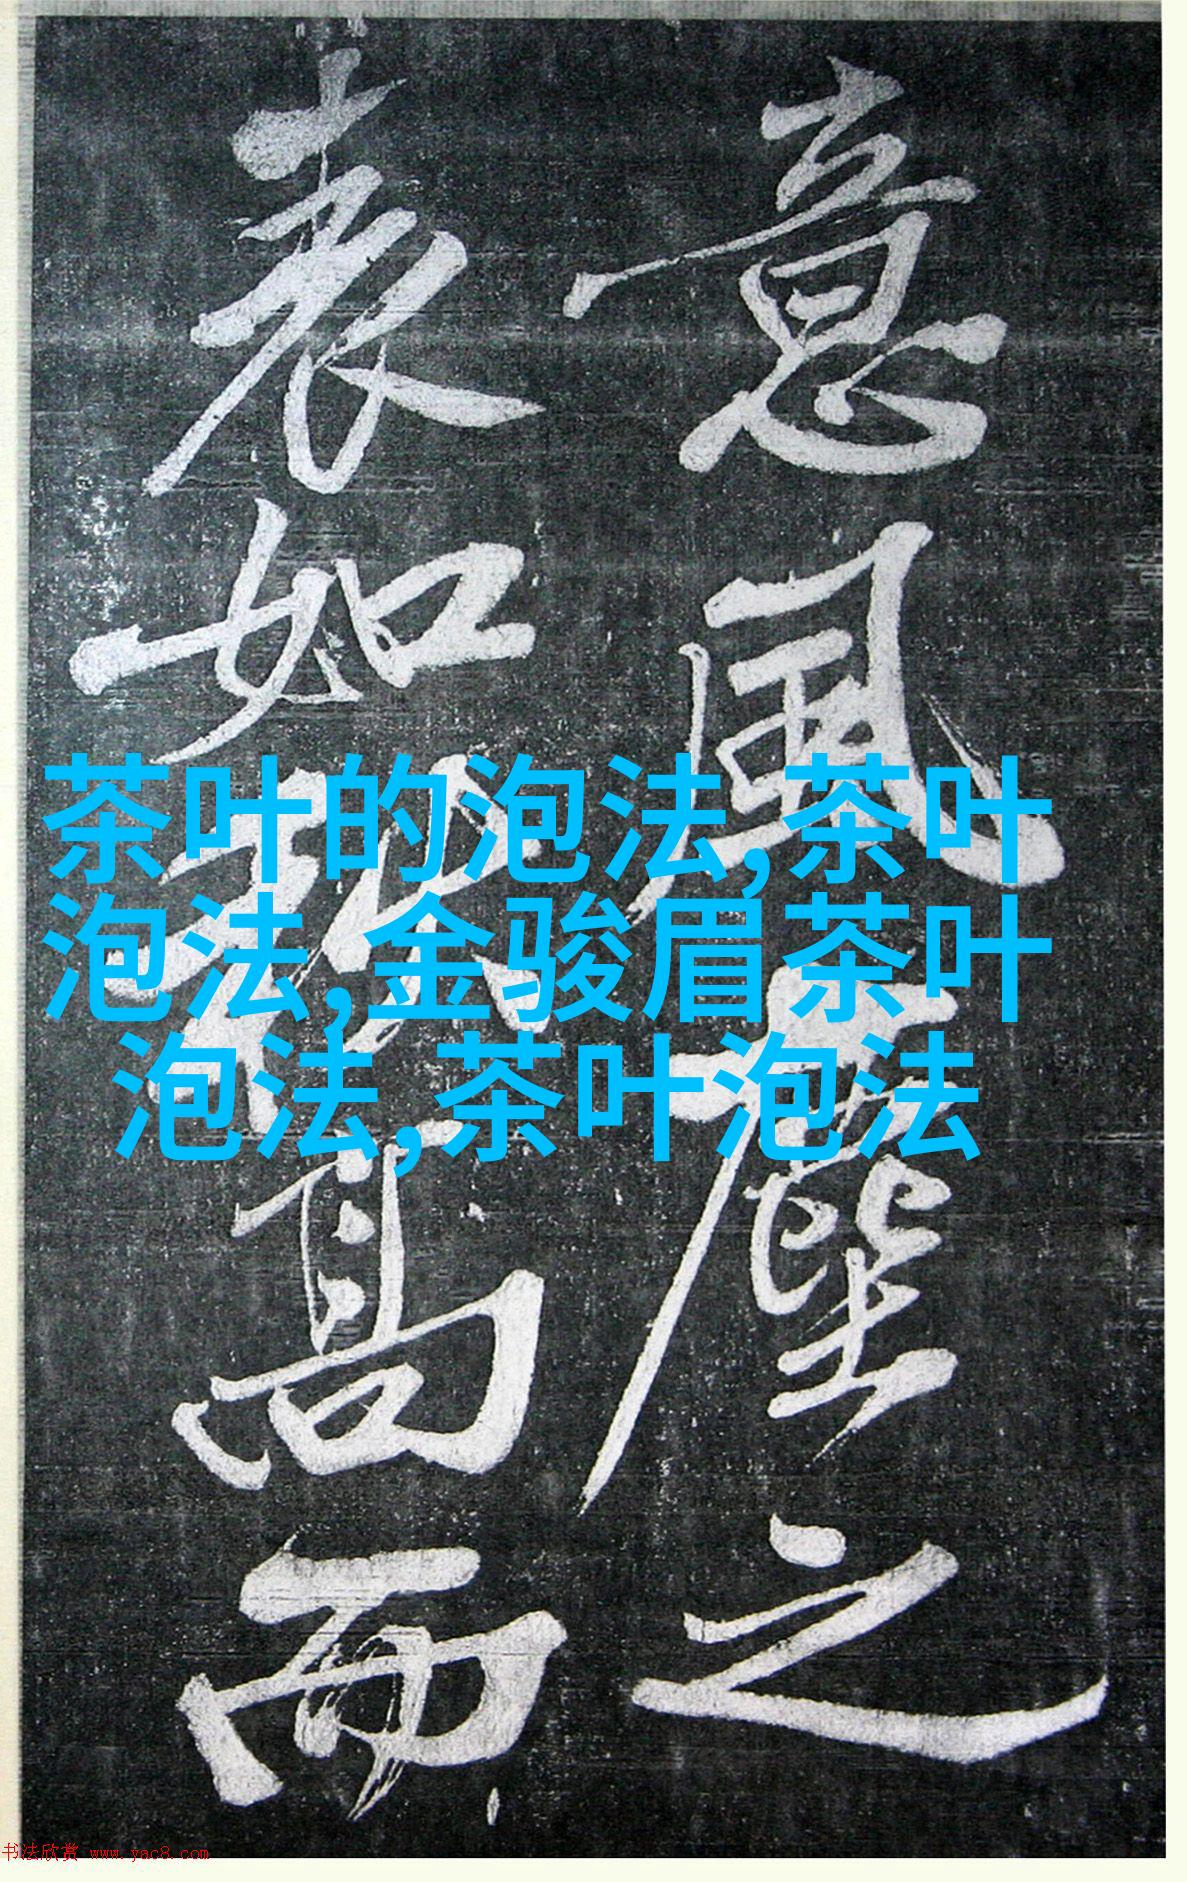 意風塵之
表如秋高而
茶叶的泡法,茶叶
泡法,金骏眉茶叶
泡法,茶叶泡法
书法欣赏 www.yac8.com